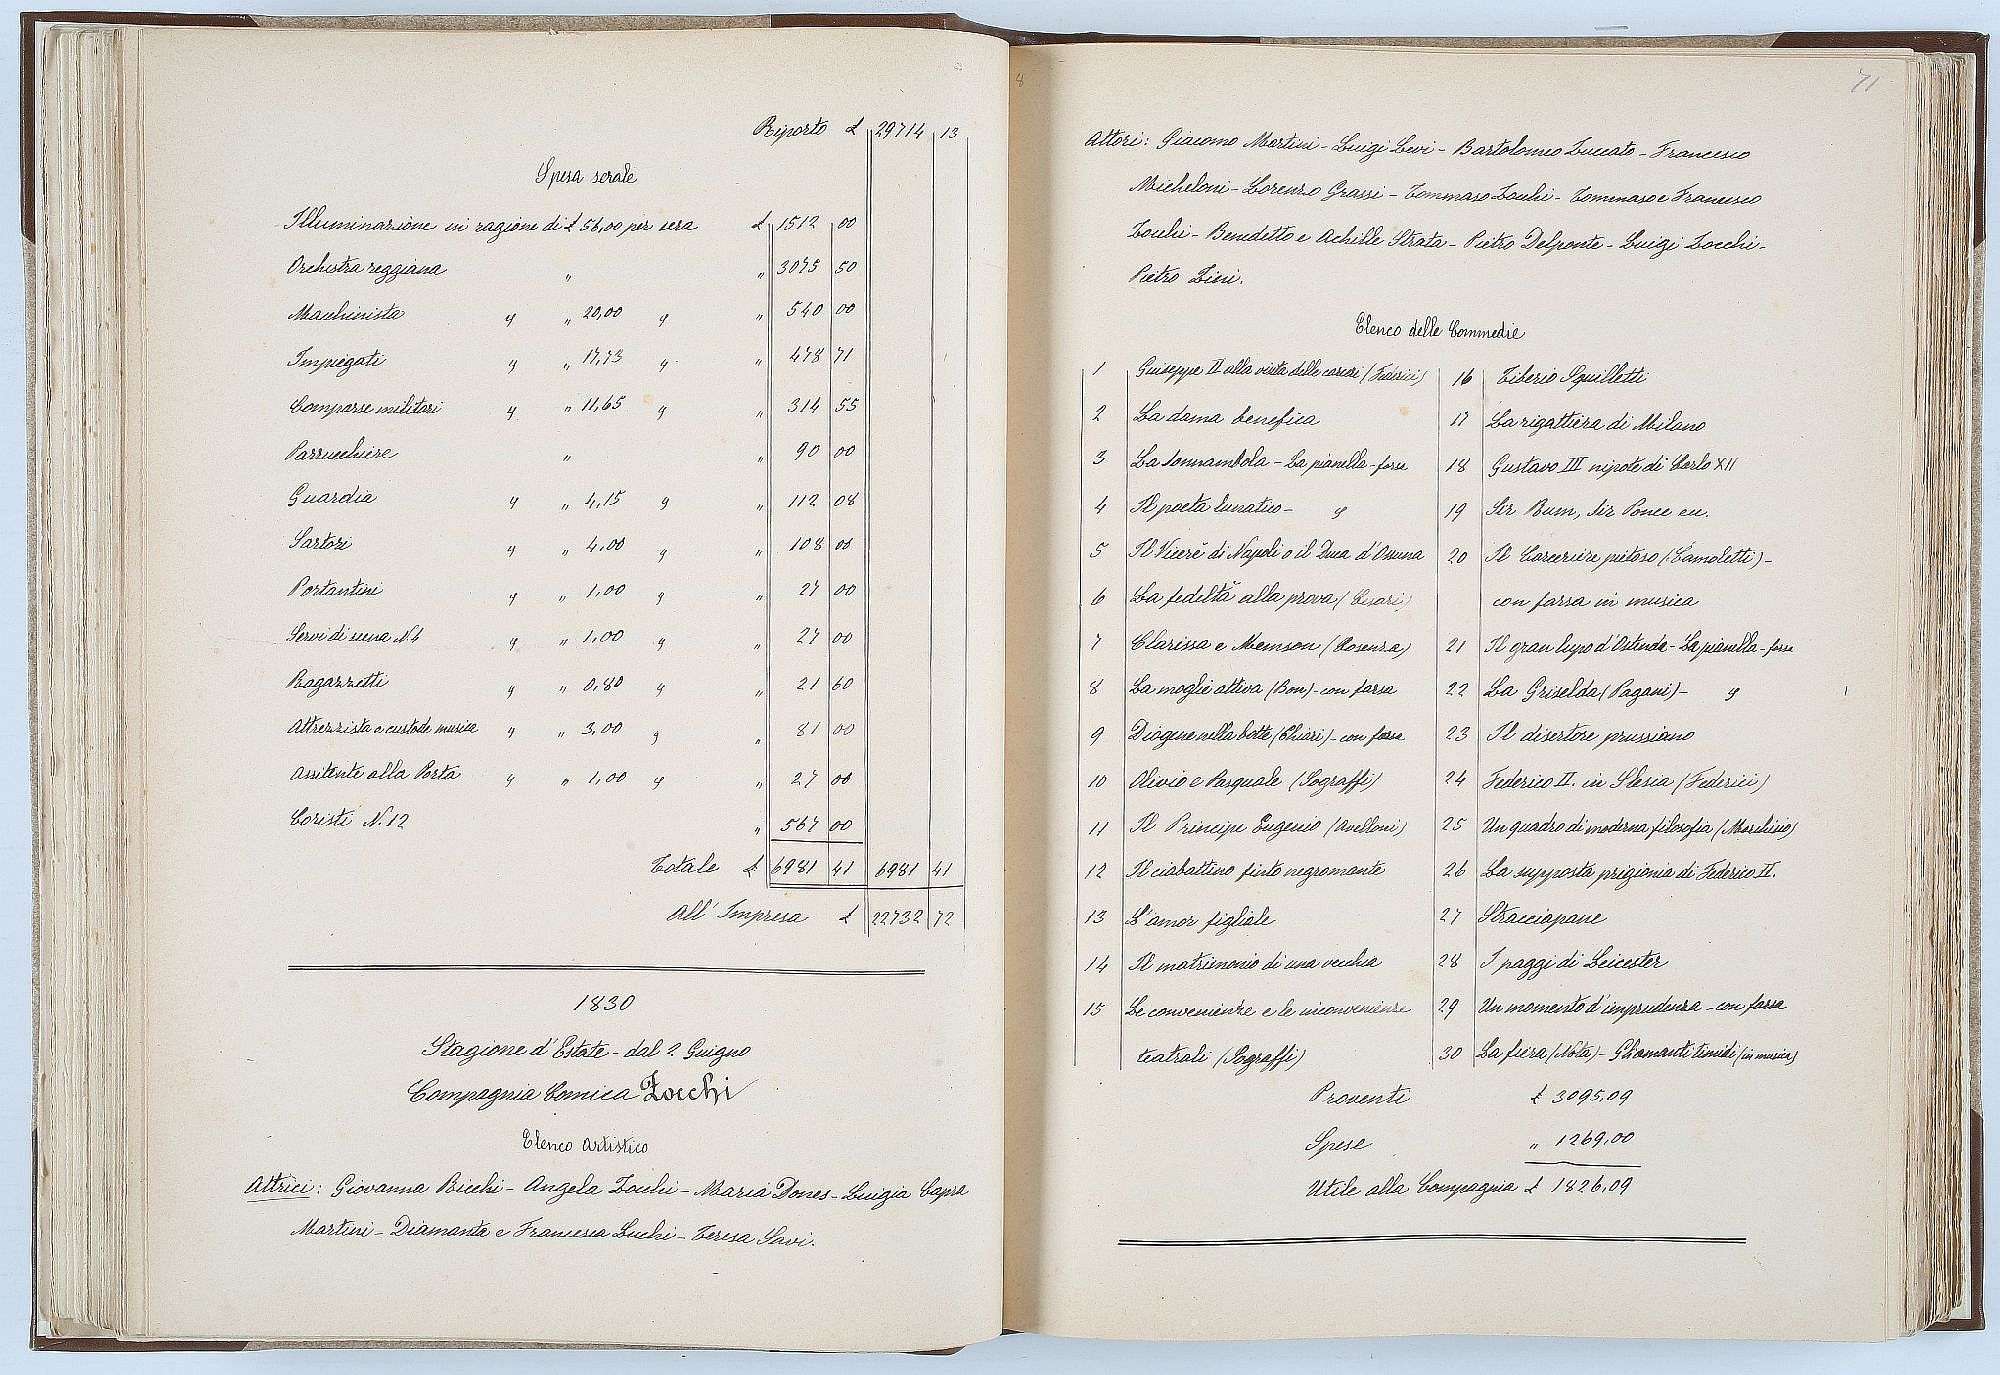 Riporto £ 29714 13
Spesa serale
Illuminazione in ragione di £ 56,00 per sera £ 1512 00
Orchestra reggiana " " 3075 50
Macchinista " " 20,00 " " 540 00
Impiegati " " 17,73 " " 478 71
Comparse militari " " 11,65 " " 314 55
Parrucchiere " " 90 00
Guardia " " 4,15 " " 112 08
Sartori " " 4,00 " " 108 00
Portantini " " 1,00 " " 27 00
Servi di scena N. " " 1,00 " " 27 00
Ragazzetti " " 0,80 " " 21 60
Attrezzista e custode musica " " 3,00 " " 81 00
Assitente alla Porta " " 1,00 " " 27 00
Coristi N. 12 " 567 00
Totale £ 6981 41 6981 41
All' Impresa £ 22732 72
1830
Stagione d'Estate - dal 2. Guigno
Compagnia Comica Zocchi
Elenco Artistico
Attrici: Giovanna Bicchi - Angela Zocchi - Maria Dones - Luigia Capra
Martini - Diamanta e Francesca Luchi - Teresa Savi.
71
Attori: Giacomo Martini - Luigi Levi - Bartolomeo Zuccato - Francesco
Micheloni - Lorenzo Grassi - Tommaso Zocchi - Tommaso e Francesco
Zocchi - Benedetto e Achille Strata - Pietro Delponte - Luigi Zocchi -
Pietro Zini.
Elenco delle Commedie
1 Guiseppe II alla visita delle carceri (Federici)
2 La dama benefica
3 La sonnambola - La pianella - farse
4 Il poeta lunatico - "
5 Il Vicerè di Napoli o il Duca d'Ossuna
6 La fedeltà alla prova (Cesari)
7 Clarissa e Memson (Cosenza)
8 La moglie attiva (Bon) - con farsa
9 Diogene nella botte (Chiari) - con farsa
10 Olivio e Pasquale (Sograffi)
11 Il Principe Eugenio (Avelloni)
12 Il ciabattino finto negromante
13 L'amor figliale
14 Il matrimonio di una vecchia
15 Le convenienze e le inconvenienze
teatrali (Sograffi)
16 Tiberio Squilletti
17 La rigattiera di Milano
18 Gustavo III nipote di Carlo XII
19 Sir Rum, Sir Ponce ecc.
20 Il Carceriere pietoso (Camoletti) -
con farsa in musica
21 Il gran lupo d'Ostenda - La pianella - farse
22 La Griselda (Pagani) - "
23 Il disertore prussiano
24 Federico II. in Slesia (Federici)
25 Un quadro di moderna filosofia (Marchisio)
26 La supposta prigionia di Federico II.
27 Stracciapane
28 I paggi di Leicester
29 Un momento d'imprudenza - con farsa
30 La fiera (Nota) - Gli amanti timidi (in musica)
Proventi £ 3095.09
Spese " 1269.00
Utile alla Compagnia £ 1826.09